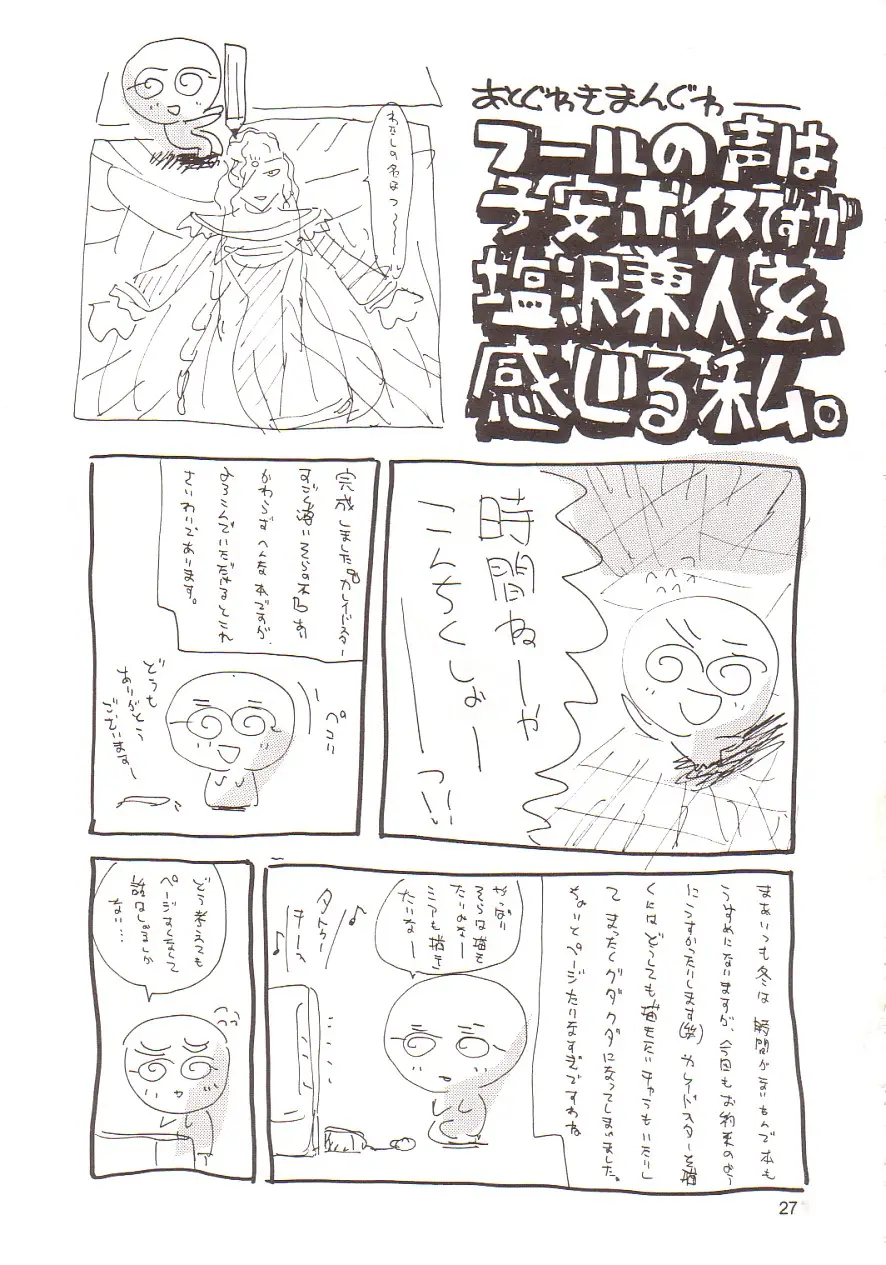 あとがきまんがー
フールの声は
子安ボイスですが
塩沢兼人を、
感じる私。
わたしの名はっ〜〜
時間ねーや
こんちくしょーっ!!
完成しました カレイドスター
すごく薄い
かわらずへんな本ですが、
よろこんでいただけるとこれ
さいわいであります。
ペコリ
どうも
ありがとう
ございますー
まあいつも冬は 時間がないもんで本も
うすめになりますが、今回もお約束のよー
にうすかったりします(笑) カレイドスターを描
くにはどうしても描きたいキャラもいたりし
て まったくグダグダになってしまいました。
ちょいとページたりなすぎですわね
やっぱり
そらは描き
たいなー
ミアも描き
たいなー
どう考えても
ページすくなくて
話なし
ない…
27